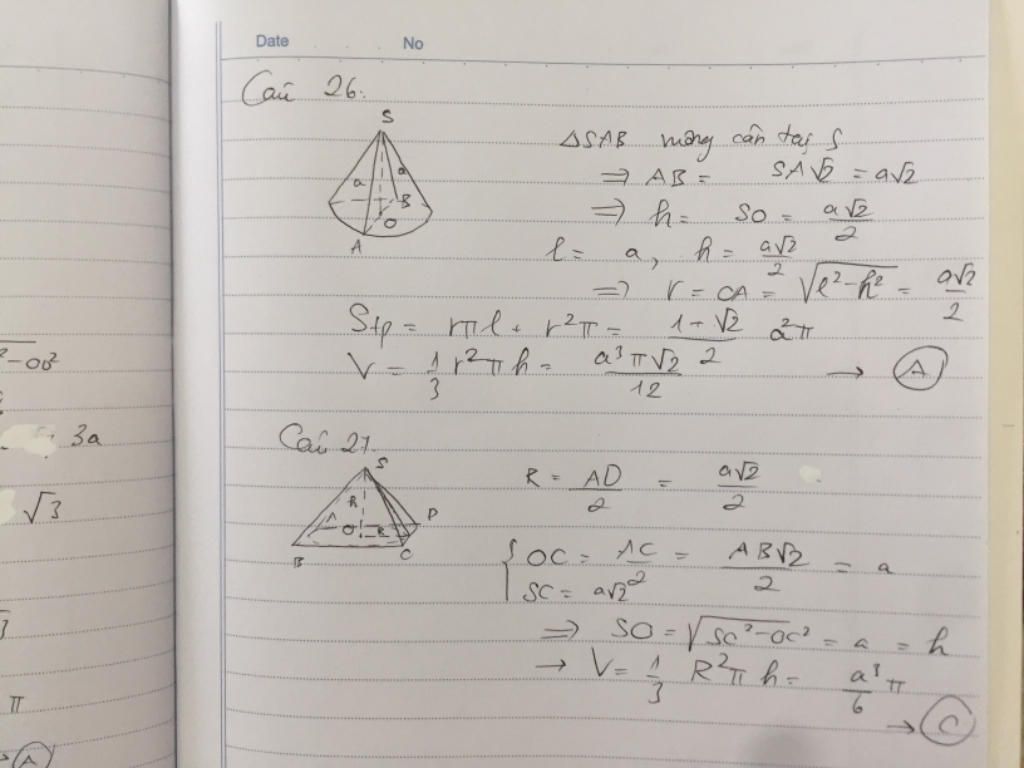 Date No
Câu 26.
S
a a
B
O
A
ΔSAB vuông cân tại S
⇒ AB = SA√2 = a√2
⇒ h = SO = a√2/2
l = a, h = a√2/2
⇒ r = OA = √(l²-h²) = a√2/2
Stp = rπl + r²π = (1+√2)/2 a²π
V = 1/3 r²πh = a³π√2/12 → A
Câu 27.
S
h
A O R D
B C
R = AD/2 = a√2/2
{ OC = AC/2 = AB√2/2 = a
SC = a√2
⇒ SO = √(SC²-OC²) = a = h
→ V = 1/3 R²πh = a³/6 π
→ C
²-OB²
3a
√3
π
→ A